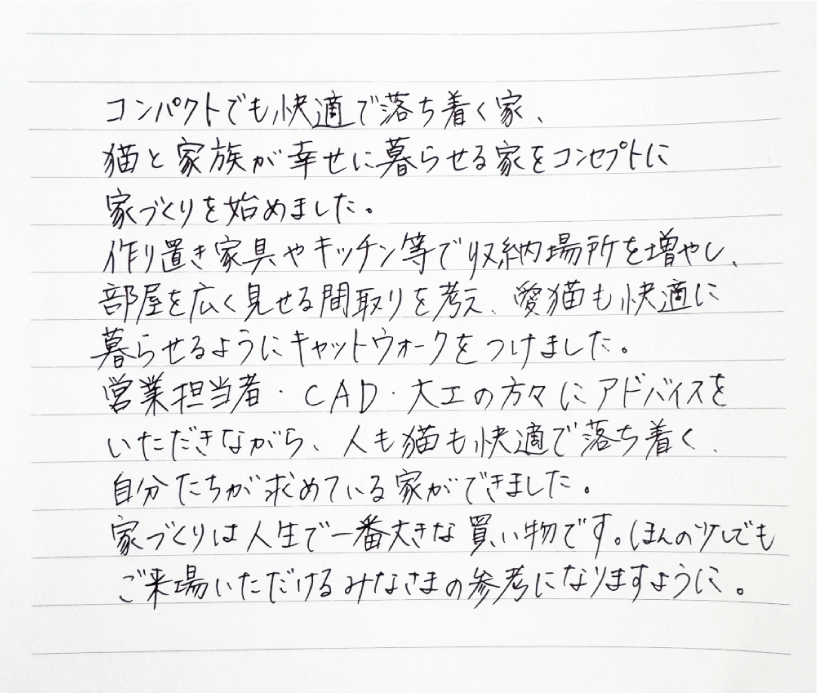 コンパクトでも快適で落ち着く家、
猫と家族が幸せに暮らせる家をコンセプトに
家づくりを始めました。
作り置き家具やキッチン等で収納場所を増やし、
部屋を広く見せる間取りを考え、愛猫も快適に
暮らせるようにキャットウォークをつけました。
営業担当者・CAD・大工の方々にアドバイスを
いただきながら、人も猫も快適で落ち着く、
自分たちが求めている家ができました。
家づくりは人生で一番大きな買い物です。ほんの少しでも
ご来場いただけるみなさまの参考になりますように。